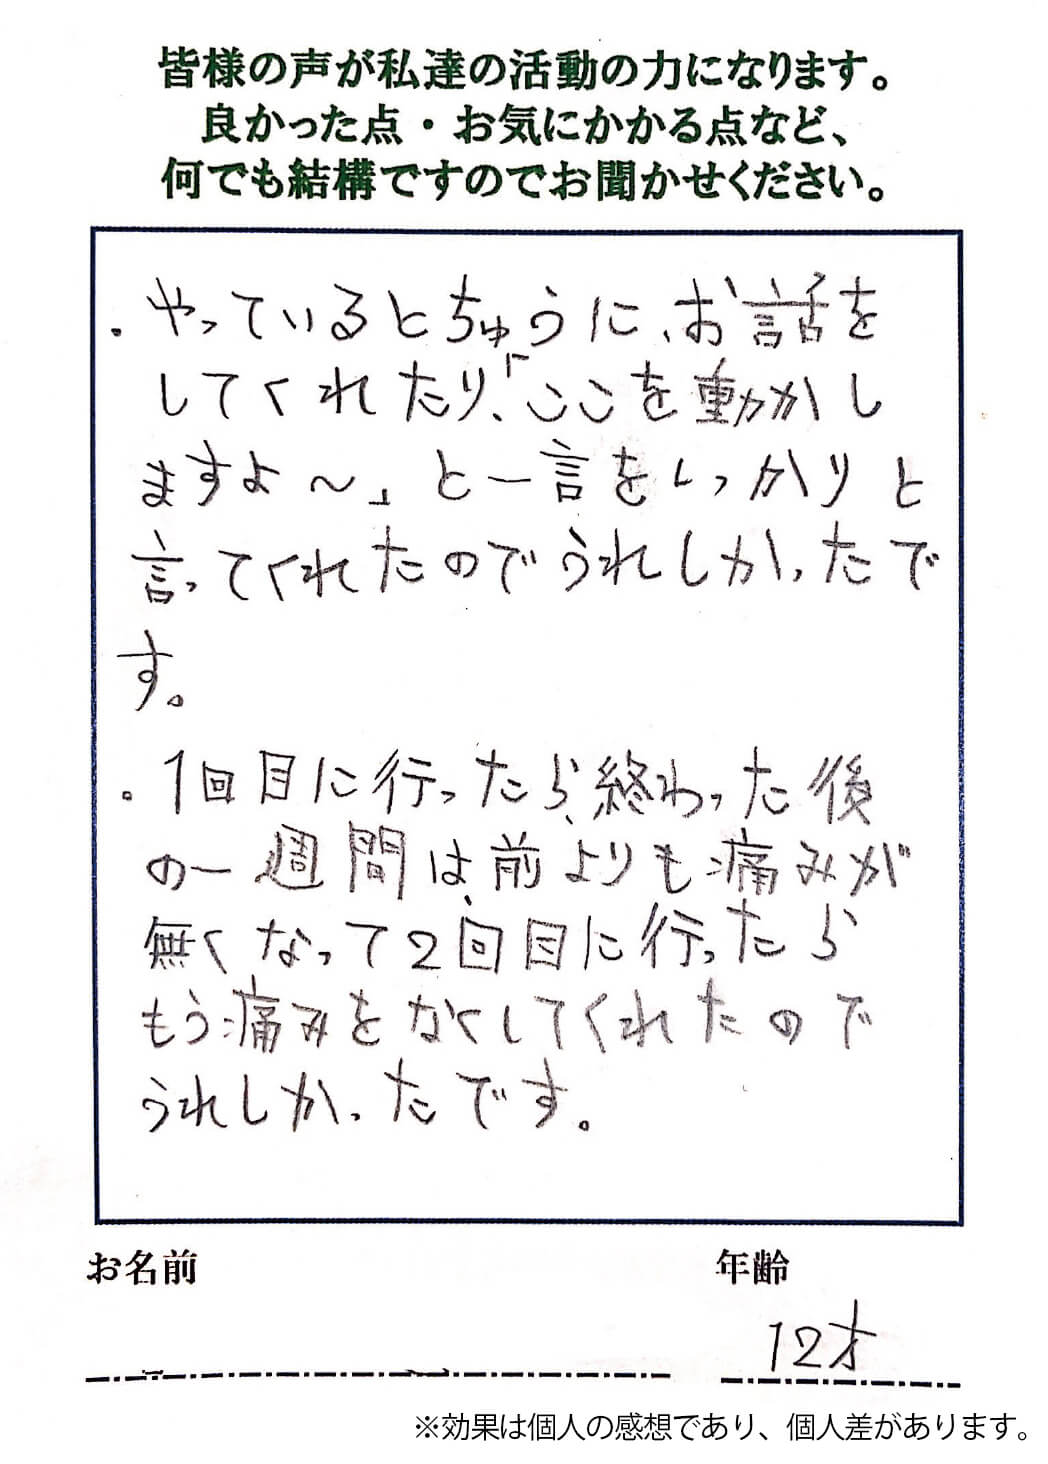 皆様の声が私達の活動の力になります。
良かった点・お気にかかる点など、
何でも結構ですのでお聞かせください。
・やっているとちゅうに、お話を
してくれたり、「ここを動かし
ますよ〜」と一言をしっかりと
言ってくれたのでうれしかったで
す。
・1回目に行ったら、終わった後
の一週間は、前よりも痛みが
無くなって2回目に行ったら
もう痛みをなくしてくれたので
うれしかったです。
お名前
年齢
12才
※効果は個人の感想であり、個人差があります。